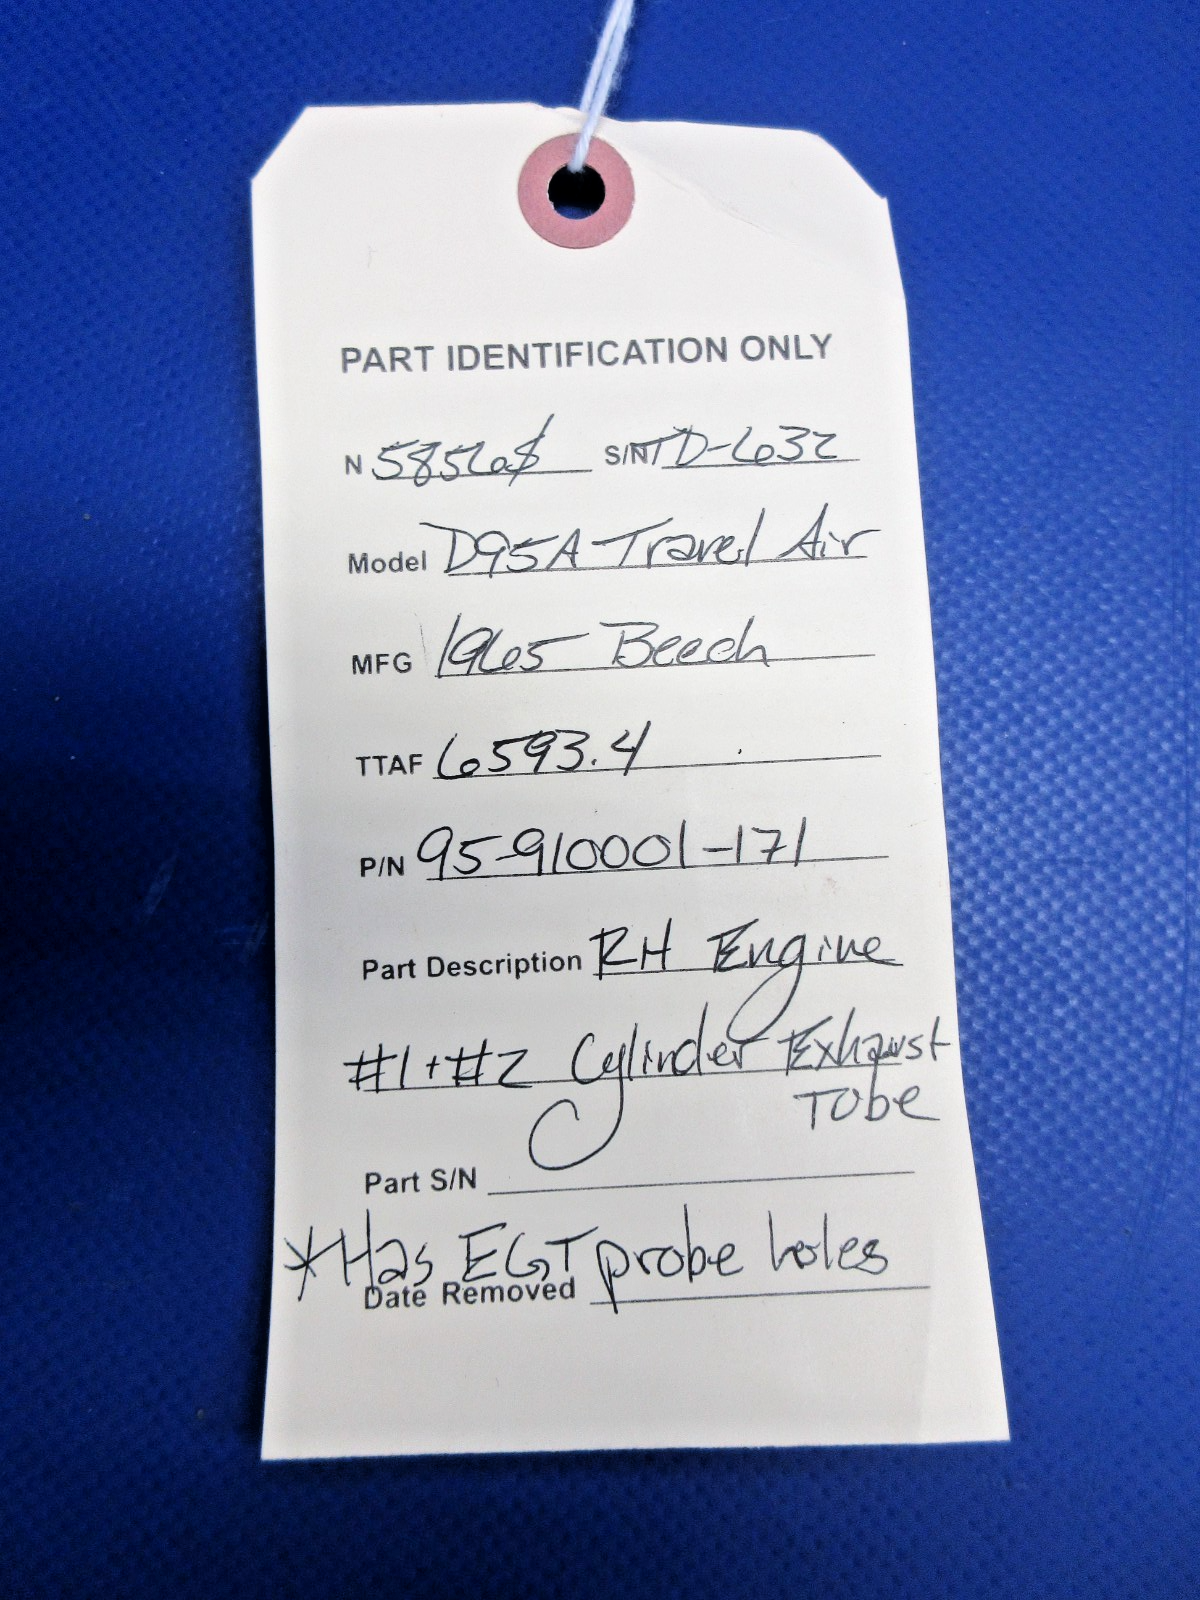 PART IDENTIFICATION ONLY
N 5856S S/N TD-632
Model D95A Travel Air
MFG 1965 Beech
TTAF 6593.4
P/N 95-910001-171
Part Description RH Engine
#1+#2 Cylinder Exhaust
Tube
Part S/N
*Has EGT probe holes
Date Removed